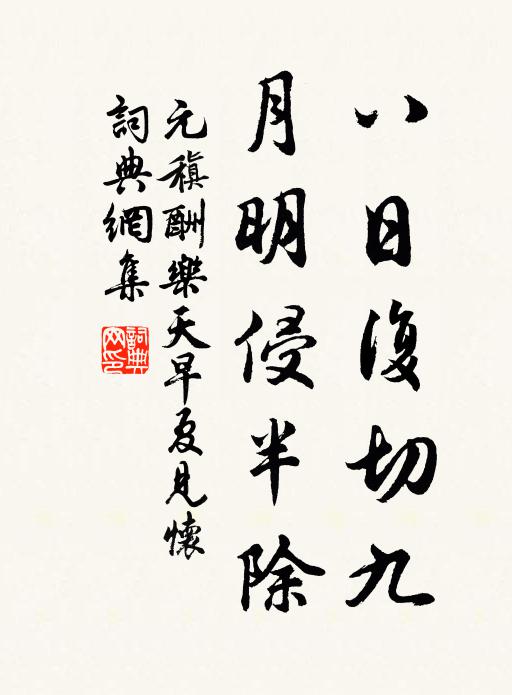 八日復切九
月明侵半除
元稹酬樂天早夏見懷
詞典網集
詞典網印